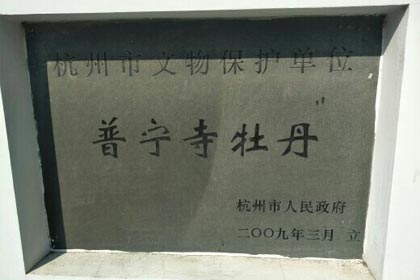 杭州市文物保护单位
普宁寺牡丹
杭州市人民政府
二〇〇九年三月 立